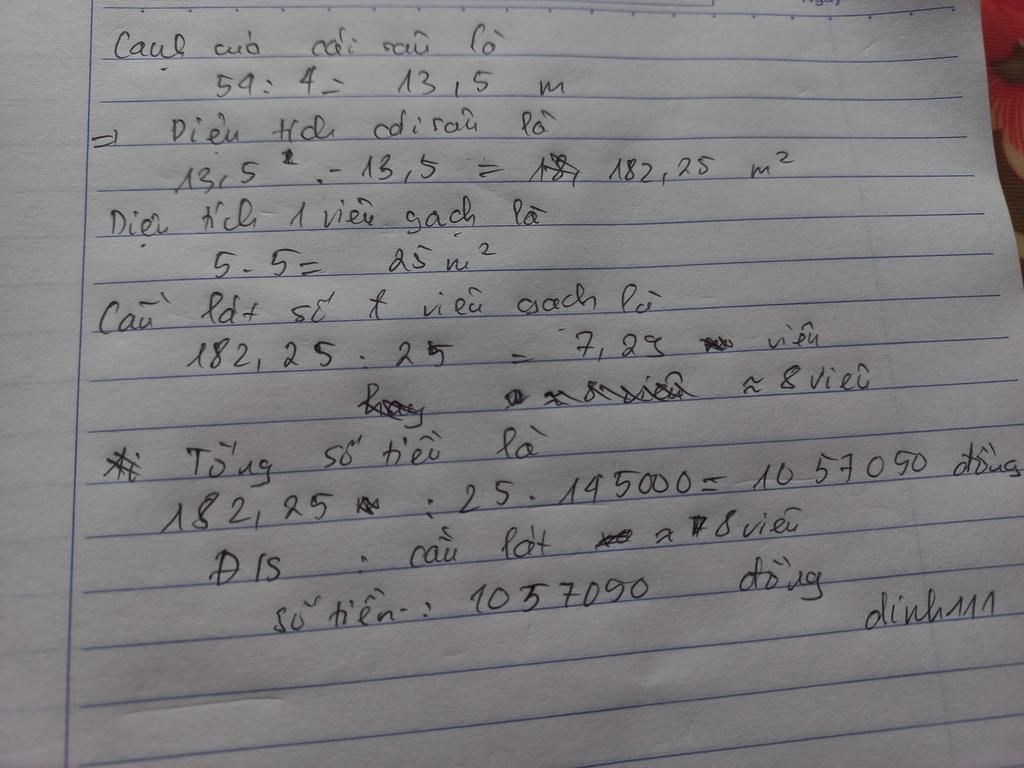 Cạnh của cái sân là
54 : 4 = 13,5 m
=> Diện tích cái sân là
13,5 . 13,5 = 182,25 m²
Diện tích 1 viên gạch là
5 . 5 = 25 m²
Cần lát số viên gạch là
182,25 : 25 = 7,29 viên
≈ 8 viên
Tổng số tiền là
182,25 : 25 . 145000 = 1057050 đồng
Đ/S : cần lát ≈ 8 viên
số tiền : 1057050 đồng
dinh111